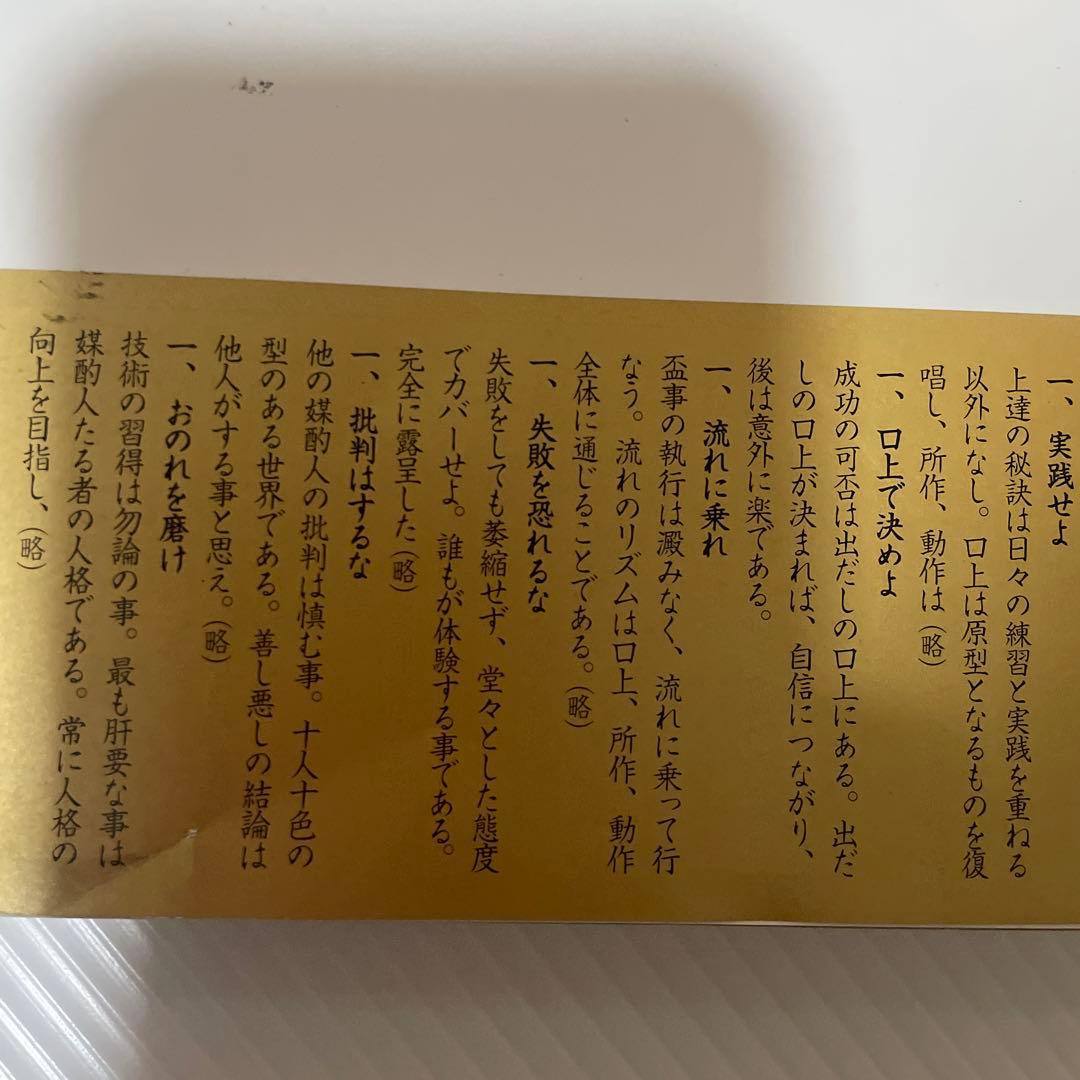 一、実践せよ
上達の秘訣は日々の練習と実践を重ねる
以外になし。口上は原型となるものを復
唱し、所作、動作は(略)
一、口上で決めよ
成功の可否は出だしの口上にある。出だ
しの口上が決まれば、自信につながり、
後は意外に楽である。
一、流れに乗れ
盃事の執行は澱みなく、流れに乗って行
なう。流れのリズムは口上、所作、動作
全体に通じることである。(略)
一、失敗を恐れるな
失敗をしても萎縮せず、堂々とした態度
でカバーせよ。誰もが体験する事である。
完全に露呈した(略)
一、批判はするな
他の媒酌人の批判は慎む事。十人十色の
型のある世界である。善し悪しの結論は
他人がする事と思え。(略)
一、おのれを磨け
技術の習得は勿論の事。最も肝要な事は
媒酌人たる者の人格である。常に人格の
向上を目指し、(略)